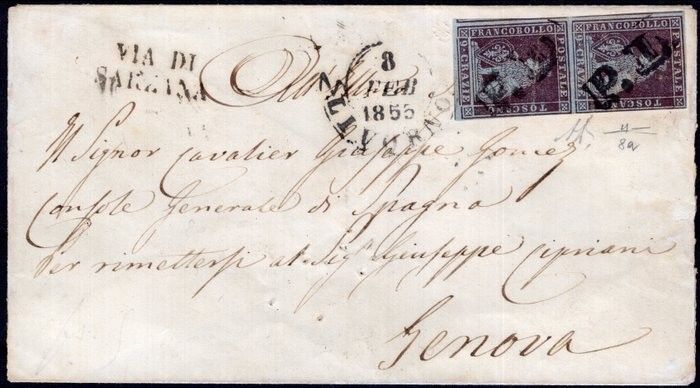 VIA DI
SARZANA
LIVORNO
8
FEB
1855
FRANCOBOLLO
POSTALE
TOSCANO
9 CRAZIE
FRANCOBOLLO
POSTALE
TOSCANO
9 CRAZIE
P.D.
P.D.
11
8a
Il Signor Cavalier Giuseppe Gomez
Console Generale di Spagna
Per rimettersi al Sigr Giuseppe Cipriani
Genova